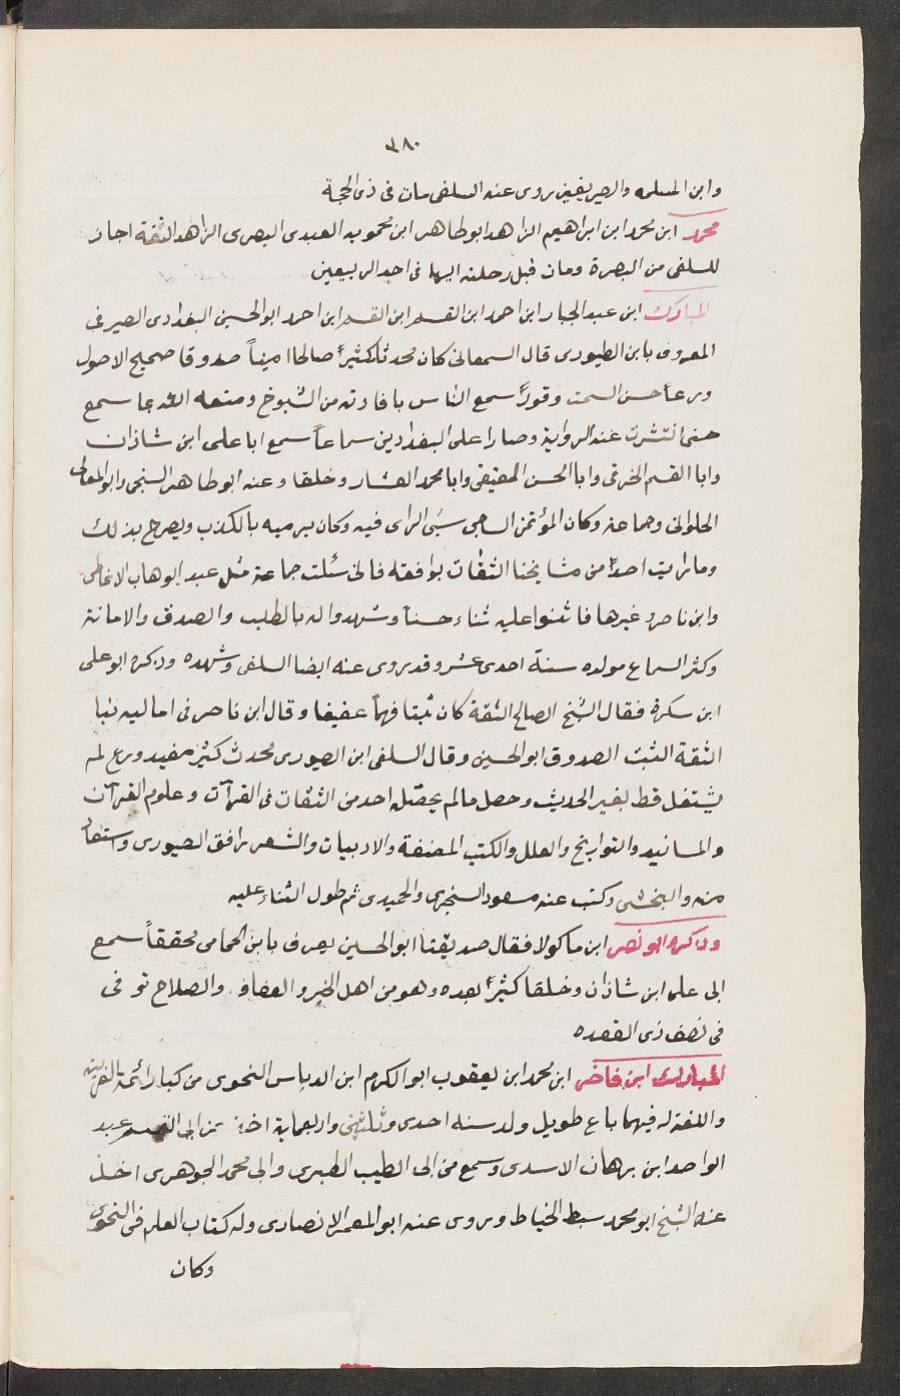 ٣٨٠
وابن المسلمه والصريفين روى عنه السلفى مات فى ذى الحجة
محمد ابن محمد ابن ابراهيم الزاهد ابو طاهر ابن محمويه العبدى البصرى الزاهد الثقة اجاز
للسلفى من البصرة ومات قبل رحلته اليها فى احد الربيعين
المبارك ابن عبد الجبار ابن احمد ابن القسم ابن القسم ابن احمد ابو الحسين البغدادى الصيرفى
المعروف بابن الطيورى قال السمعانى كان محدثا كثيرًا صالحا امينًا صدوقا صحيح الاصول
ورعاً حسن السمت وقورًا سمع الناس بافادته من الشيوخ ومتعه الله بما سمع
حتى انتشرت عنه الرواية وصار اعلى البغدادين سماعاً سمع ابا على ابن شاذان
وابا القسم الخرقى وابا الحسن العتيقى وابا محمد العشار وخلقا وعنه ابو طاهر السنجى وابو المعالى
الحلوانى وجماعة وكان المؤتمن الساجى سئى الراى فيه وكان يرميه بالكذب ويصرح بذلك
وما رايت احدًا من مشايخنا الثقات يوافقه فانى سئلت جماعة مثل عبد الوهاب الانماطى
وابن ناصر وغيرها فاثنوا عليه ثناء حسنا وشهدوا له بالطلب والصدق والامانة
وكثر السماع مولده سنة احدى عشر وقد روى عنه ايضا السلفى وشهده وذكره ابو على
ابن سكرة فقال الشيخ الصالح الثقة كان ثبتا فهماً عفيفا وقال ابن ناصر فى اماليه نبا
الثقة الثبت الصدوق ابو الحسين وقال السلفى ابن الصيورى محدث كثير مفيد ورع لم
يشتغل قط بغير الحديث وحصل مالم يحصله احد من الثقات فى القرآت وعلوم القرآن
والمسانيد والتواريخ والعلل والكتب المصنفة والادبيات والشعر رافق الصيورى واستفاد
منه والنخشبى وكتب عنه مسعود السنجرى والحميدى ثم طول الثناء عليه
وذكره ابو نصر ابن ماكولا فقال صديقنا ابو الحسين يعرف بابن الحمامى محققاً سمع
ابى على ابن شاذان وخلقا كثيرًا بعده وهو من اهل الخير والعفاف والصلاح توفى
فى نصف ذى القعده
المبارك ابن فاخر ابن محمد ابن يعقوب ابو الكرم ابن الدباس النحوى من كبار ائمة العربية
واللغة له فيهما باع طويل ولد سنه احدى وثلثين واربعماية اخذ عن ابى القسم عبد
الواحد ابن برهان الاسدى وسمع من ابى الطيب الطبرى وابى محمد الجوهرى اخذ
عنه الشيخ ابو محمد سبط الخياط وروى عنه ابو المعمر الانصارى وله كتاب العلم فى النحوى
وكان